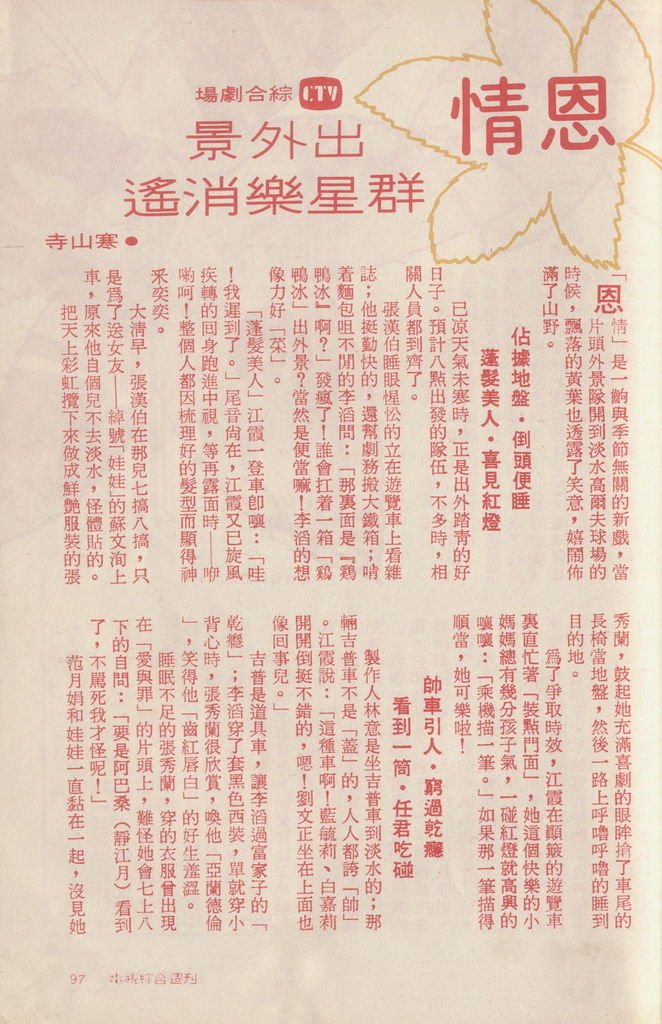 恩情
CTV 綜合劇場
出外景
群星樂消遙
●寒山寺
「恩情」是一齣與季節無關的新戲,當
片頭外景隊開到淡水高爾夫球場的
時候,飄落的黃葉也透露了笑意,嬉鬧佈
滿了山野。
佔據地盤·倒頭便睡
蓬髮美人·喜見紅燈
已涼天氣未寒時,正是出外踏青的好
日子。預計八點出發的隊伍,不多時,相
關人員都到齊了。
張漢伯睡眼惺忪的立在遊覽車上看雜
誌;他挺勤快的,還幫劇務搬大鐵箱;啃
着麵包咀不閒的李滔問:「那裏面是『鷄
鴨冰』啊?」發瘋了!誰會扛着一箱「鷄
鴨冰」出外景?當然是便當嘛!李滔的想
像力好「菜」。
「蓬髮美人」江霞一登車卽嚷:「哇
!我遲到了。」尾音尚在,江霞又已旋風
疾轉的回身跑進中視,等再露面時——咿
喲呵!整個人都因梳理好的髮型而顯得神
釆奕奕。
大清早,張漢伯在那兒七搞八搞,只
是爲了送女友——綽號「娃娃」的蘇文洵上
車,原來他自個兒不去淡水,怪體貼的。
把天上彩虹攬下來做成鮮艷服裝的張
秀蘭,鼓起她充滿喜劇的眼眸搶了車尾的
長椅當地盤,然後一路上呼嚕呼嚕的睡到
目的地。
爲了爭取時效,江霞在顚簸的遊覽車
裏直忙著「裝點門面」,她這個快樂的小
媽媽總有幾分孩子氣,一碰紅燈就高興的
嚷嚷:「乘機描一筆。」如果那一筆描得
順當,她可樂啦!
帥車引人·窮過乾癮
看到一筒·任君吃碰
製作人林意是坐吉普車到淡水的;那
輛吉普車不是「蓋」的,人人都誇「帥」
。江霞說:「這種車啊!藍毓莉、白嘉莉
開開倒挺不錯的,嗯!劉文正坐在上面也
像囘事兒。」
吉普是道具車,讓李滔過富家子的「
乾癮」;李滔穿了套黑色西裝,單就穿小
背心時,張秀蘭很欣賞,喚他「亞蘭德倫
」,笑得他「齒紅唇白」的好生羞澀。
睡眠不足的張秀蘭,穿的衣服曾出現
在「愛與罪」的片頭上,難怪她會七上八
下的自問:「要是阿巴桑(靜江月)看到
了,不罵死我才怪呢!」
范月娟和娃娃一直黏在一起,沒見她
97 中視綜合週刊